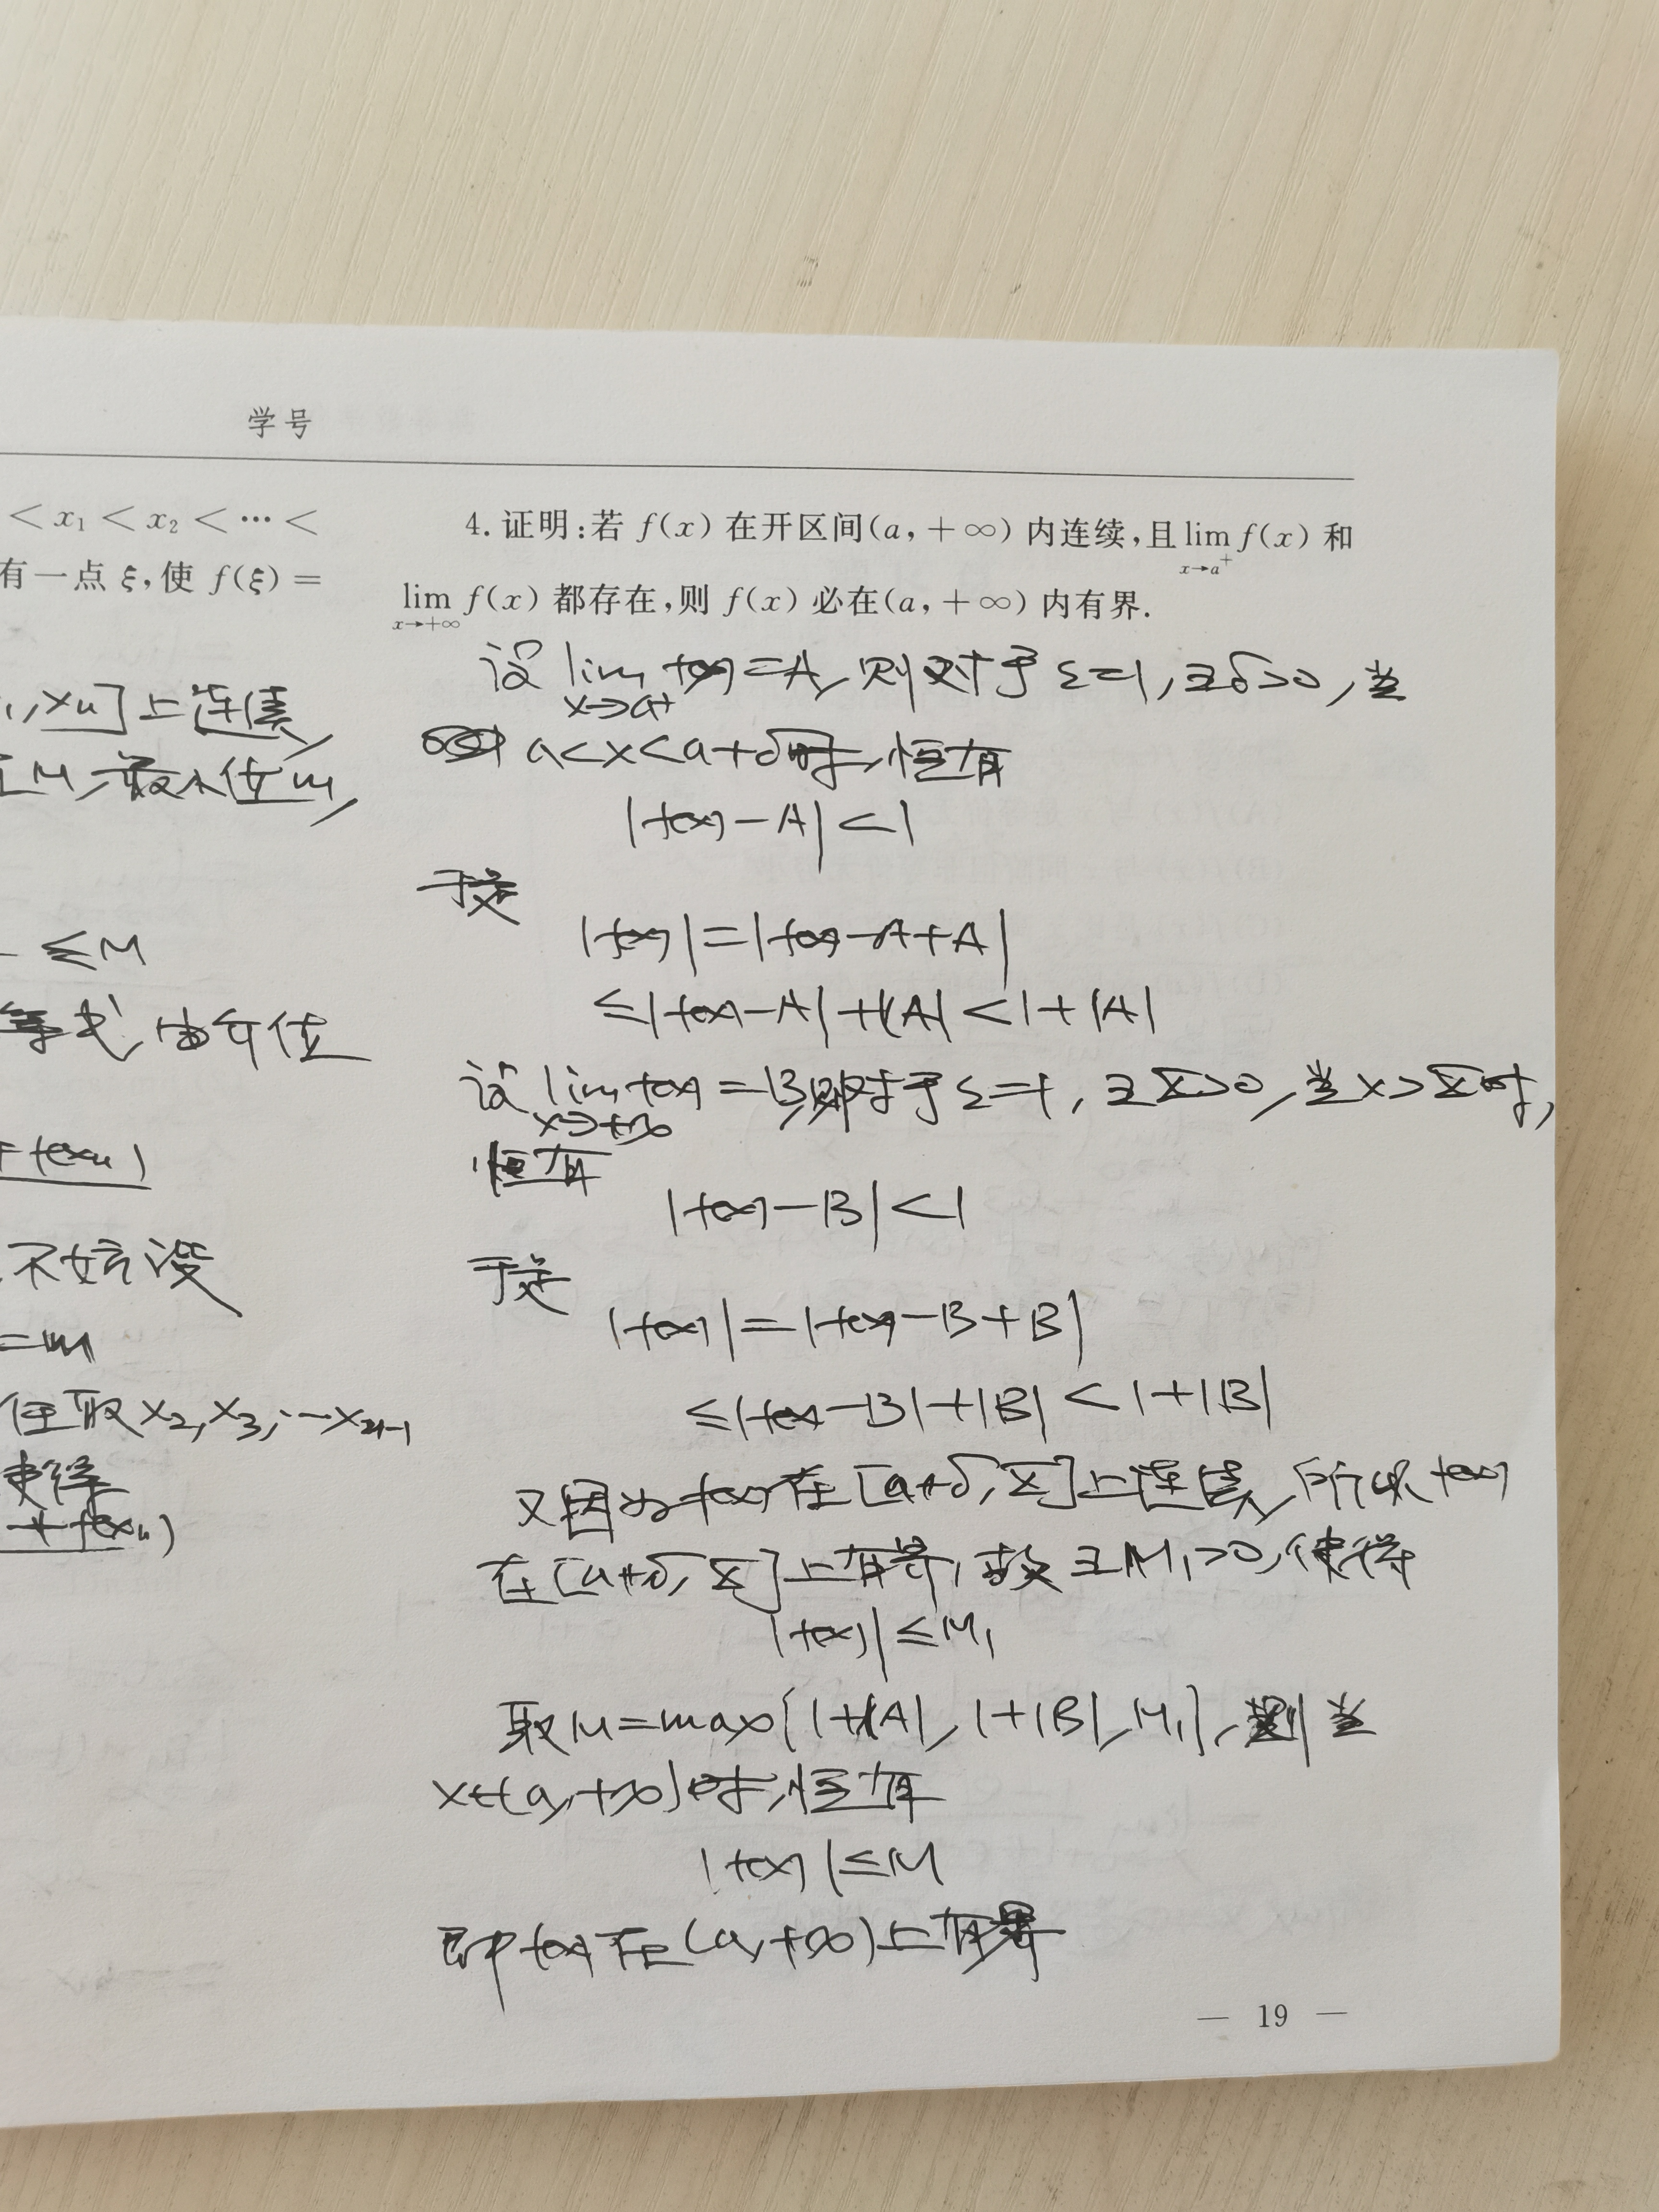 学号
< x₁ < x₂ < ··· <
有一点 ξ,使 f(ξ) =
, xn]上连续,
M,最小值m,
≤M
等式,由介值
+f(xn)
不妨设
=m
任取x₂,x₃,…xn-1
使得
+f(xn)
4. 证明:若 f(x) 在开区间(a, +∞) 内连续,且 lim f(x) 和
x→a⁺
lim f(x) 都存在,则 f(x) 必在(a, +∞) 内有界.
x→+∞
设 lim f(x)=A,则对于ε=1,∃δ>0,当
x→a⁺
a<x<a+δ时,恒有
|f(x)-A|<1
于是
|f(x)|=|f(x)-A+A|
≤|f(x)-A|+|A|<1+|A|
设 lim f(x)=B,则对于ε=1,∃X>0,当x>X时,
x→+∞
恒有
|f(x)-B|<1
于是
|f(x)|=|f(x)-B+B|
≤|f(x)-B|+|B|<1+|B|
又因为f(x)在[a+δ,X]上连续,所以f(x)
在[a+δ,X]上有界,故∃M₁>0,使得
|f(x)|≤M₁
取M=max{1+|A|,1+|B|,M₁},则当
x∈(a,+∞)时,恒有
|f(x)|≤M
即f(x)在(a,+∞)上有界
— 19 —